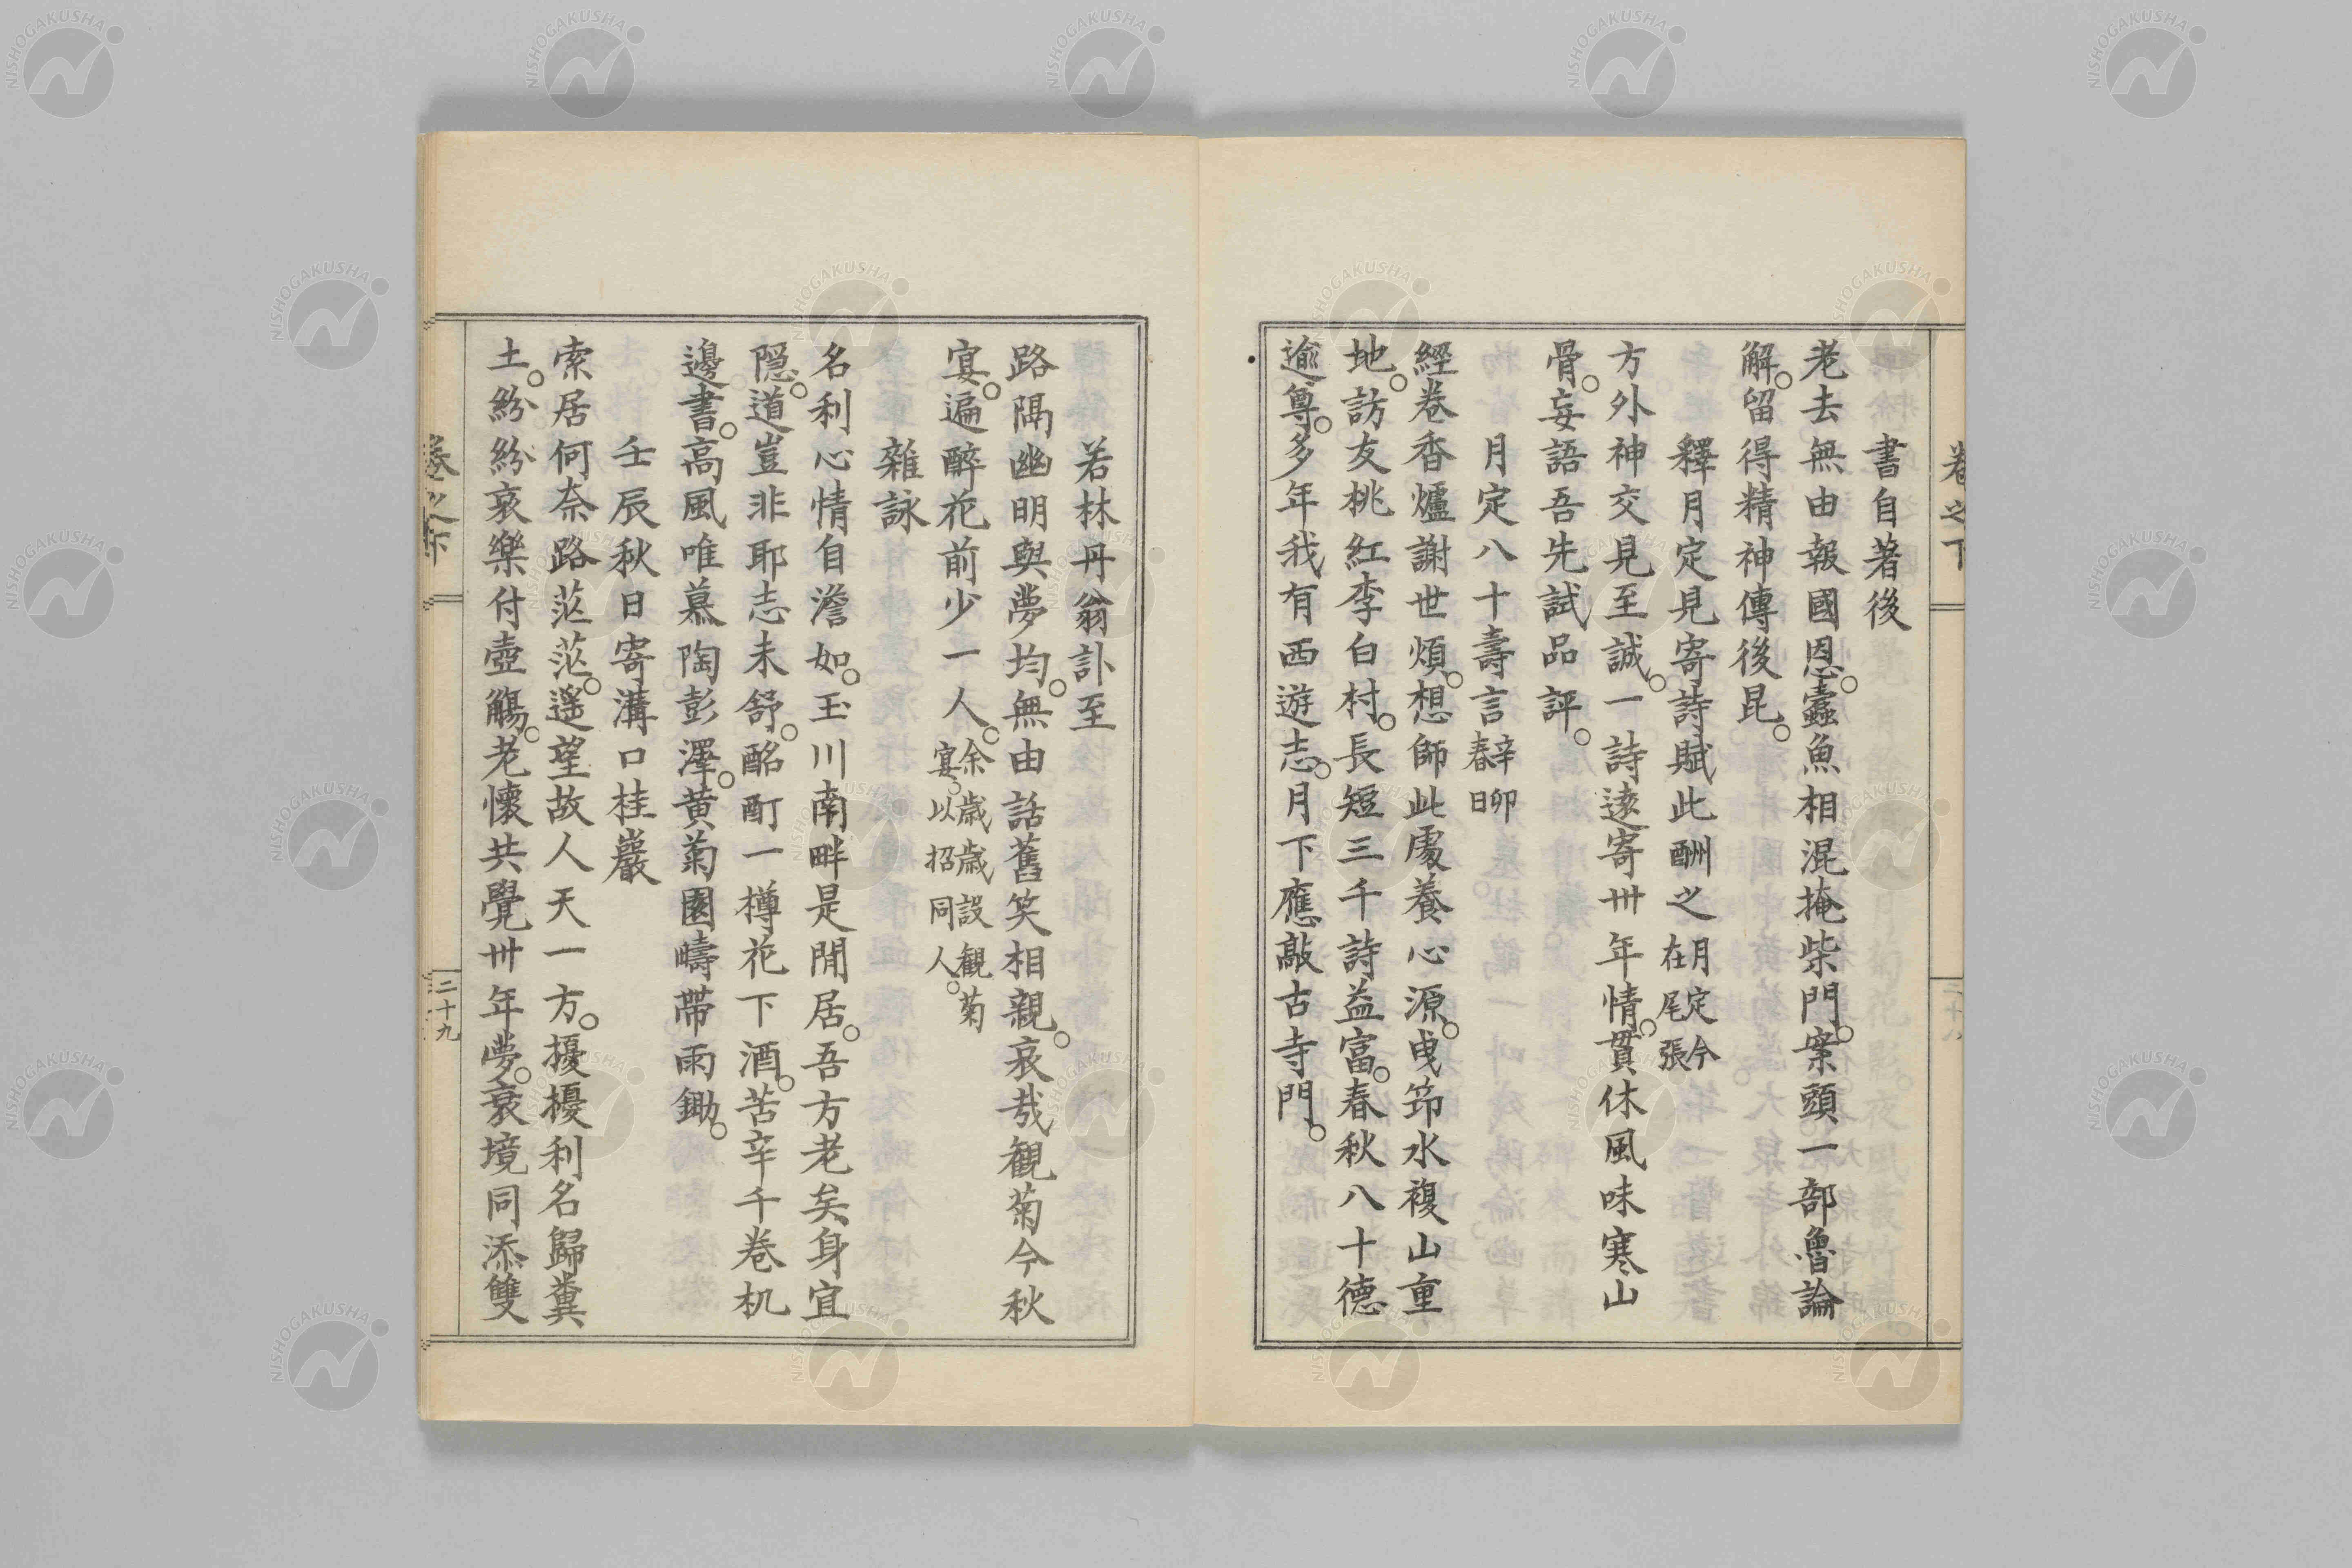 卷之下
書自著後
老去無由報國恩。蠹魚相混掩柴門。案頭一部魯論
解。留得精神傳後昆。
釋月定見寄詩賦此酬之月定今在尾張
方外神交見至誠。一詩遠寄卅年情。貫休風味寒山
骨。妄語吾先試品評。
月定八十壽言辛卯春日
經卷香爐謝世煩。想師此處養心源。曳笻水複山重
地。訪友桃紅李白村。長短三千詩益富。春秋八十德
逾尊。多年我有西遊志。月下應敲古寺門。
若林丹翁訃至
路隔幽明與夢均。無由話舊笑相親。哀哉観菊今秋
宴。遍醉花前少一人。余歳歳設観菊宴。以招同人。
雜詠
名利心情自澹如。玉川南畔是閒居。吾方老矣身宜
隠。道豈非耶志未舒。酩酊一樽花下酒。苦辛千卷机
邊書。高風唯慕陶彭澤。黄菊園疇帶雨鋤。
壬辰秋日寄溝口桂巖
索居何奈路茫茫。遥望故人天一方。擾擾利名歸糞
土。紛紛哀樂付壺觴。老懷共覺卅年夢。衰境同添雙
卷之下
二十九
NISHOGAKUSHA